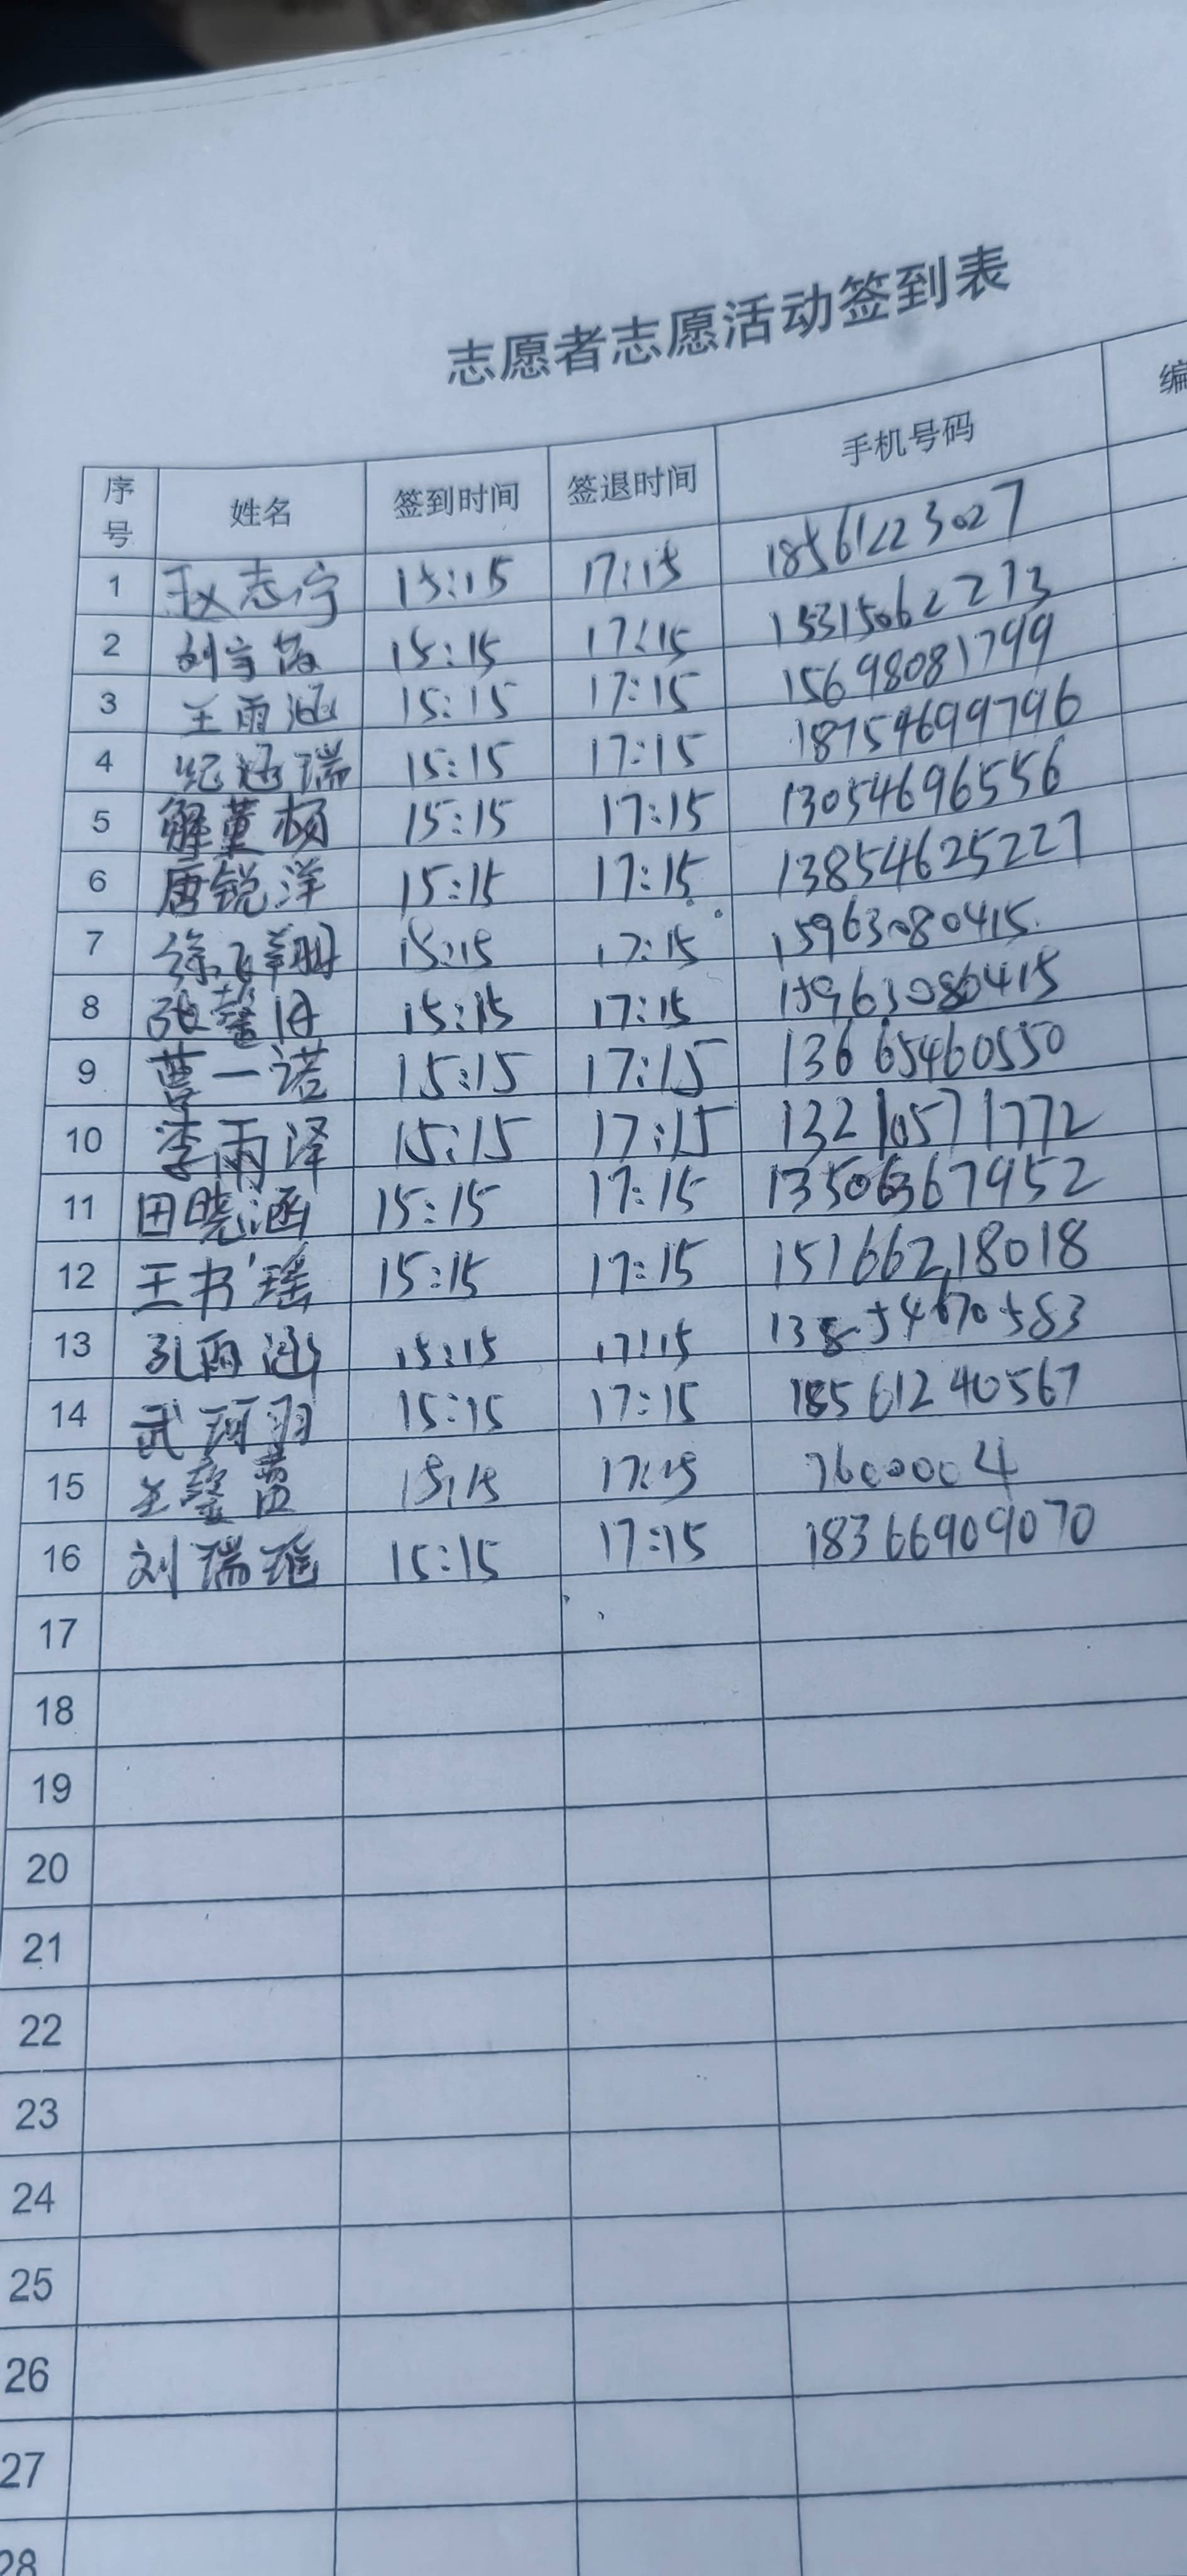 志愿者志愿活动签到表
序号 姓名 签到时间 签退时间 手机号码 编
1 赵志宁 15:15 17:15 18561223027
2 刘宇 15:15 17:15 15315062273
3 王雨涵 15:15 17:15 15698081799
4 纪涵瑞 15:15 17:15 18754699796
5 解董杨 15:15 17:15 13054696556
6 唐锐洋 15:15 17:15 13854625227
7 徐飞翔 15:15 17:15 15963080415
8 张馨月 15:15 17:15 15963080415
9 曹一诺 15:15 17:15 13665460550
10 李雨泽 15:15 17:15 13210571772
11 田晓涵 15:15 17:15 13506367952
12 王书瑶 15:15 17:15 15166218018
13 孔雨涵 15:15 17:15 13854670583
14 武珂羽 15:15 17:15 18561240567
15 王 15:15 17:15 7600004
16 刘瑞瑶 15:15 17:15 18366909070
17
18
19
20
21
22
23
24
25
26
27
28